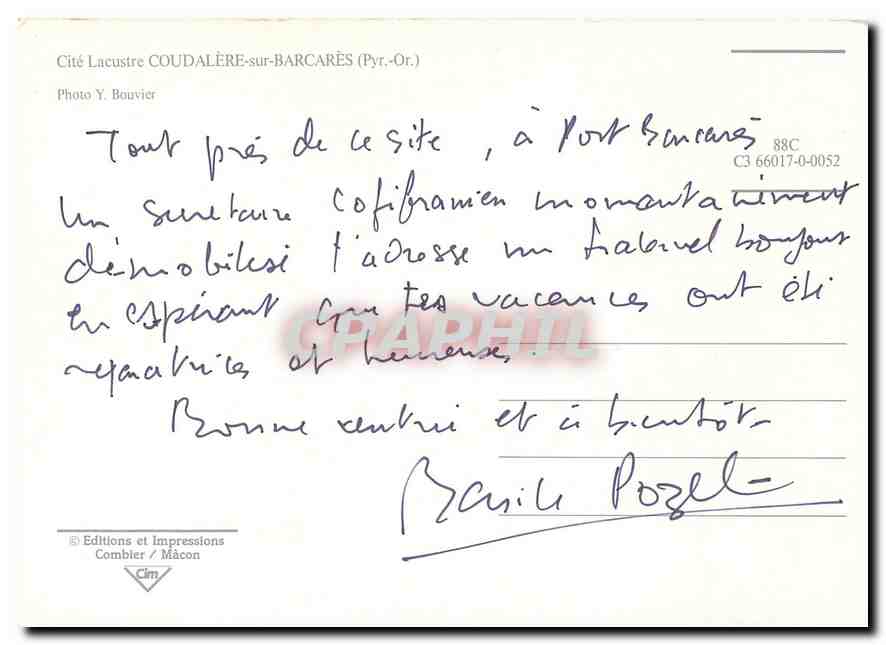 Cité Lacustre COUDALÈRE-sur-BARCARÈS (Pyr.-Or.)
Photo Y. Bouvier
88C
C3 66017-0-0052
Tout près de ce site, à Port Barcarès
un secretaire cofibranien momentanément
démobilisé t'adresse un fraternel bonjour
en espérant que tes vacances ont été
réparatrices et heureuses.
Bonne rentrée et à bientôt
Basile
CPAPHIL
© Editions et Impressions
Combier / Mâcon
Cim